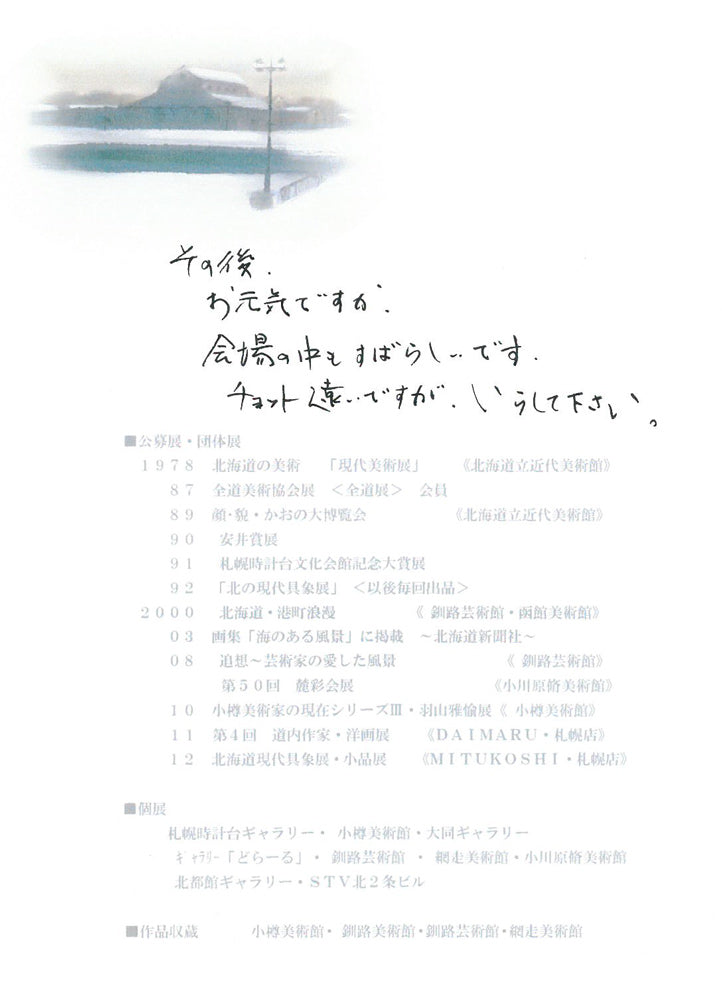 その後.
お元気ですか.
会場の中もすばらしいです.
チョット遠いですが、いらして下さい。
■公募展・団体展
1978 北海道の美術 「現代美術展」 《北海道立近代美術館》
87 全道美術協会展 <全道展> 会員
89 顔・貌・かおの大博覧会 《北海道立近代美術館》
90 安井賞展
91 札幌時計台文化会館記念大賞展
92 「北の現代具象展」 <以後毎回出品>
2000 北海道・港町浪漫 《 釧路芸術館・函館美術館》
03 画集「海のある風景」に掲載 ~北海道新聞社~
08 追想~芸術家の愛した風景 《 釧路芸術館》
第50回 麓彩会展 《小川原脩美術館》
10 小樽美術家の現在シリーズⅢ・羽山雅愉展《 小樽美術館》
11 第4回 道内作家・洋画展 《DAIMARU・札幌店》
12 北海道現代具象展・小品展 《MITUKOSHI・札幌店》
■個展
札幌時計台ギャラリー・ 小樽美術館・大同ギャラリー
ギャラリー「どらーる」・ 釧路芸術館 ・ 網走美術館・小川原脩美術館
北都館ギャラリー・STV北2条ビル
■作品収蔵 小樽美術館・ 釧路美術館・釧路芸術館・網走美術館